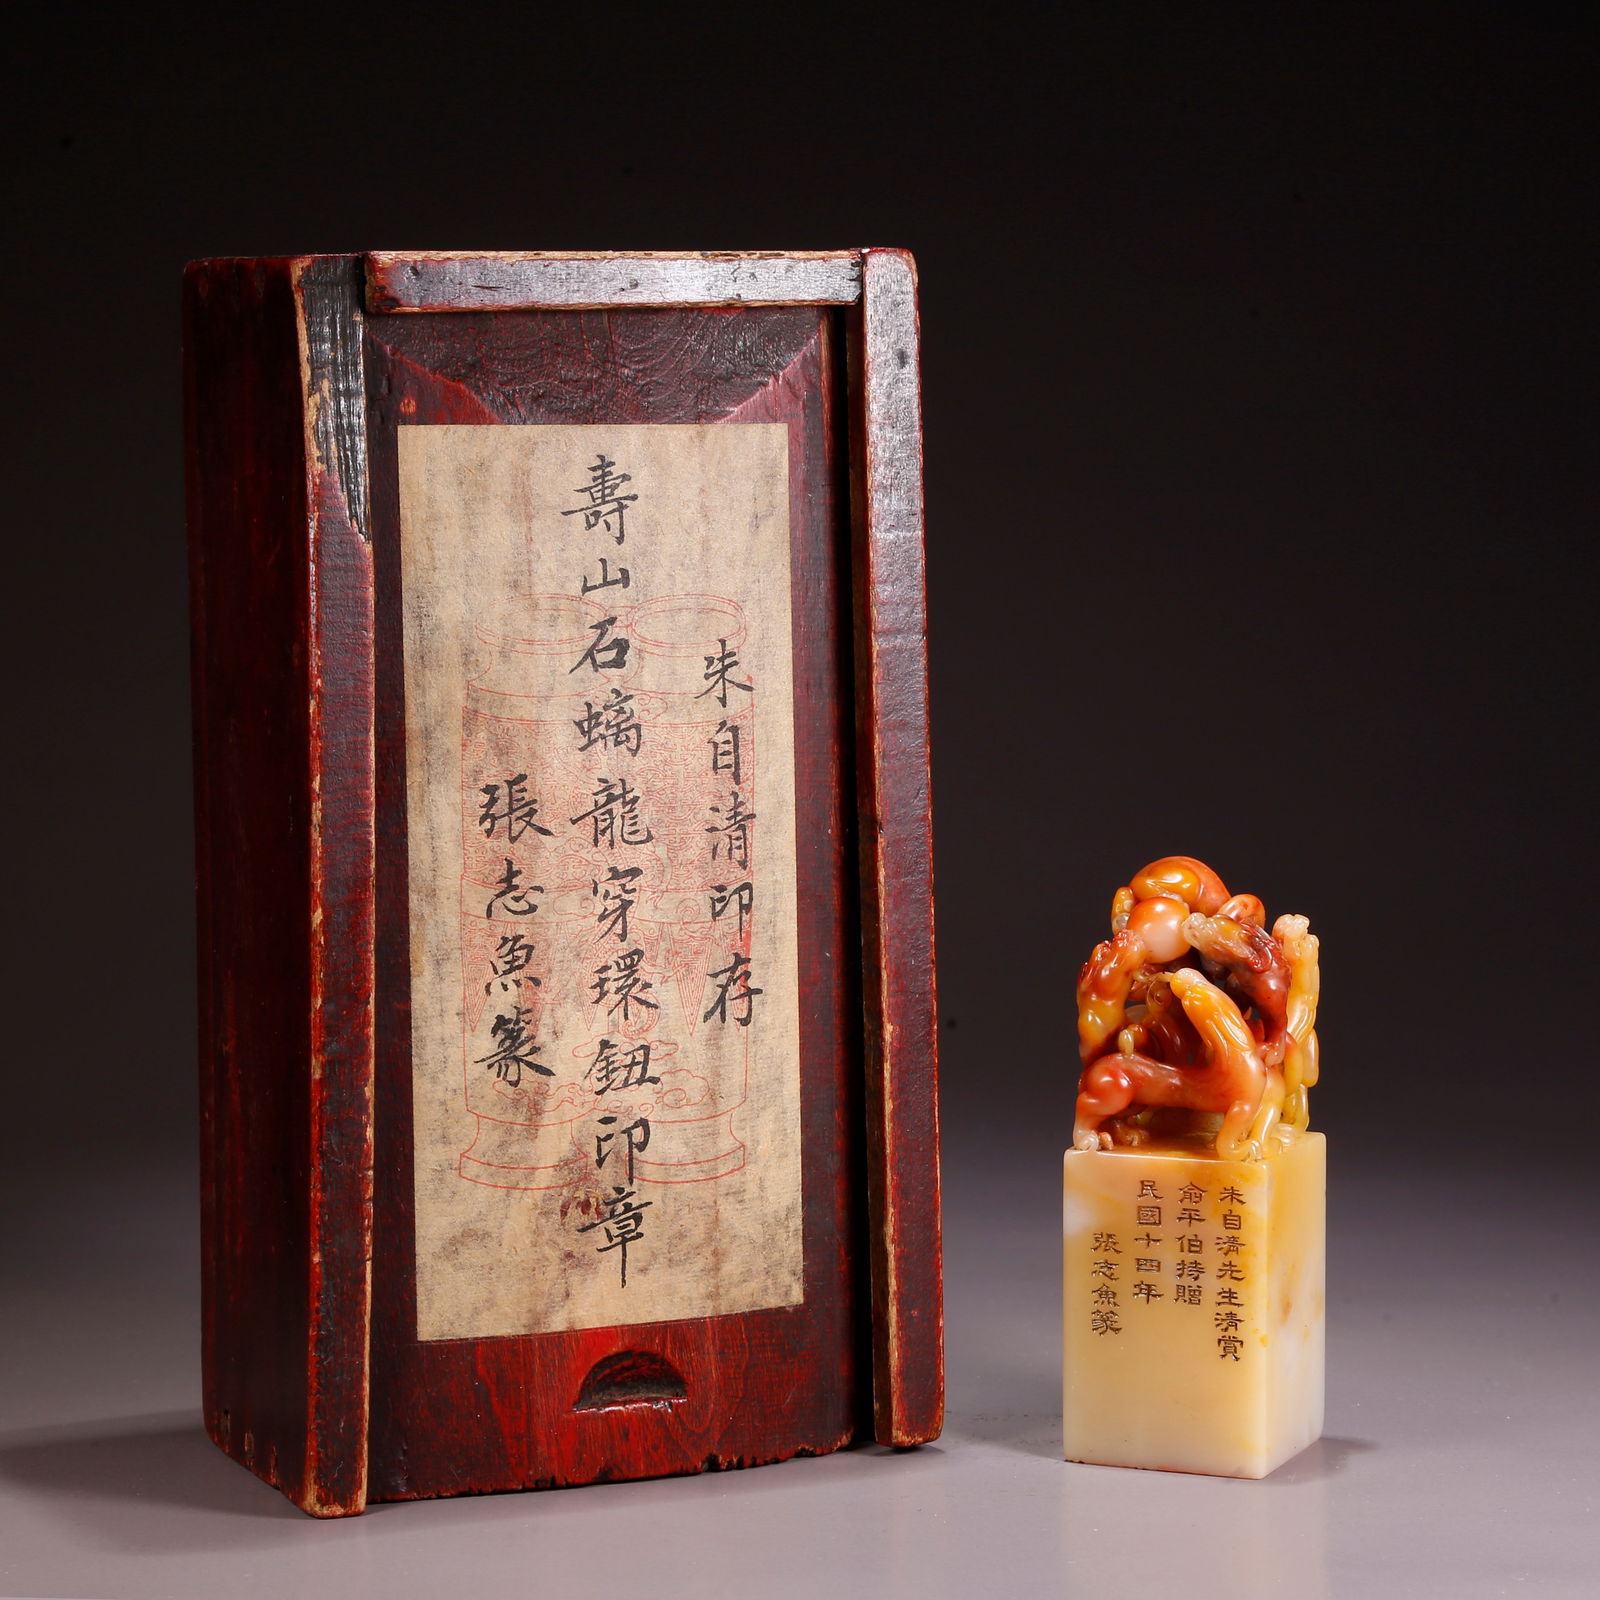 朱自清印存
壽山石螭龍穿環鈕印章
張志魚篆
朱自清先生清賞
俞平伯持贈
民國十四年
張志魚篆